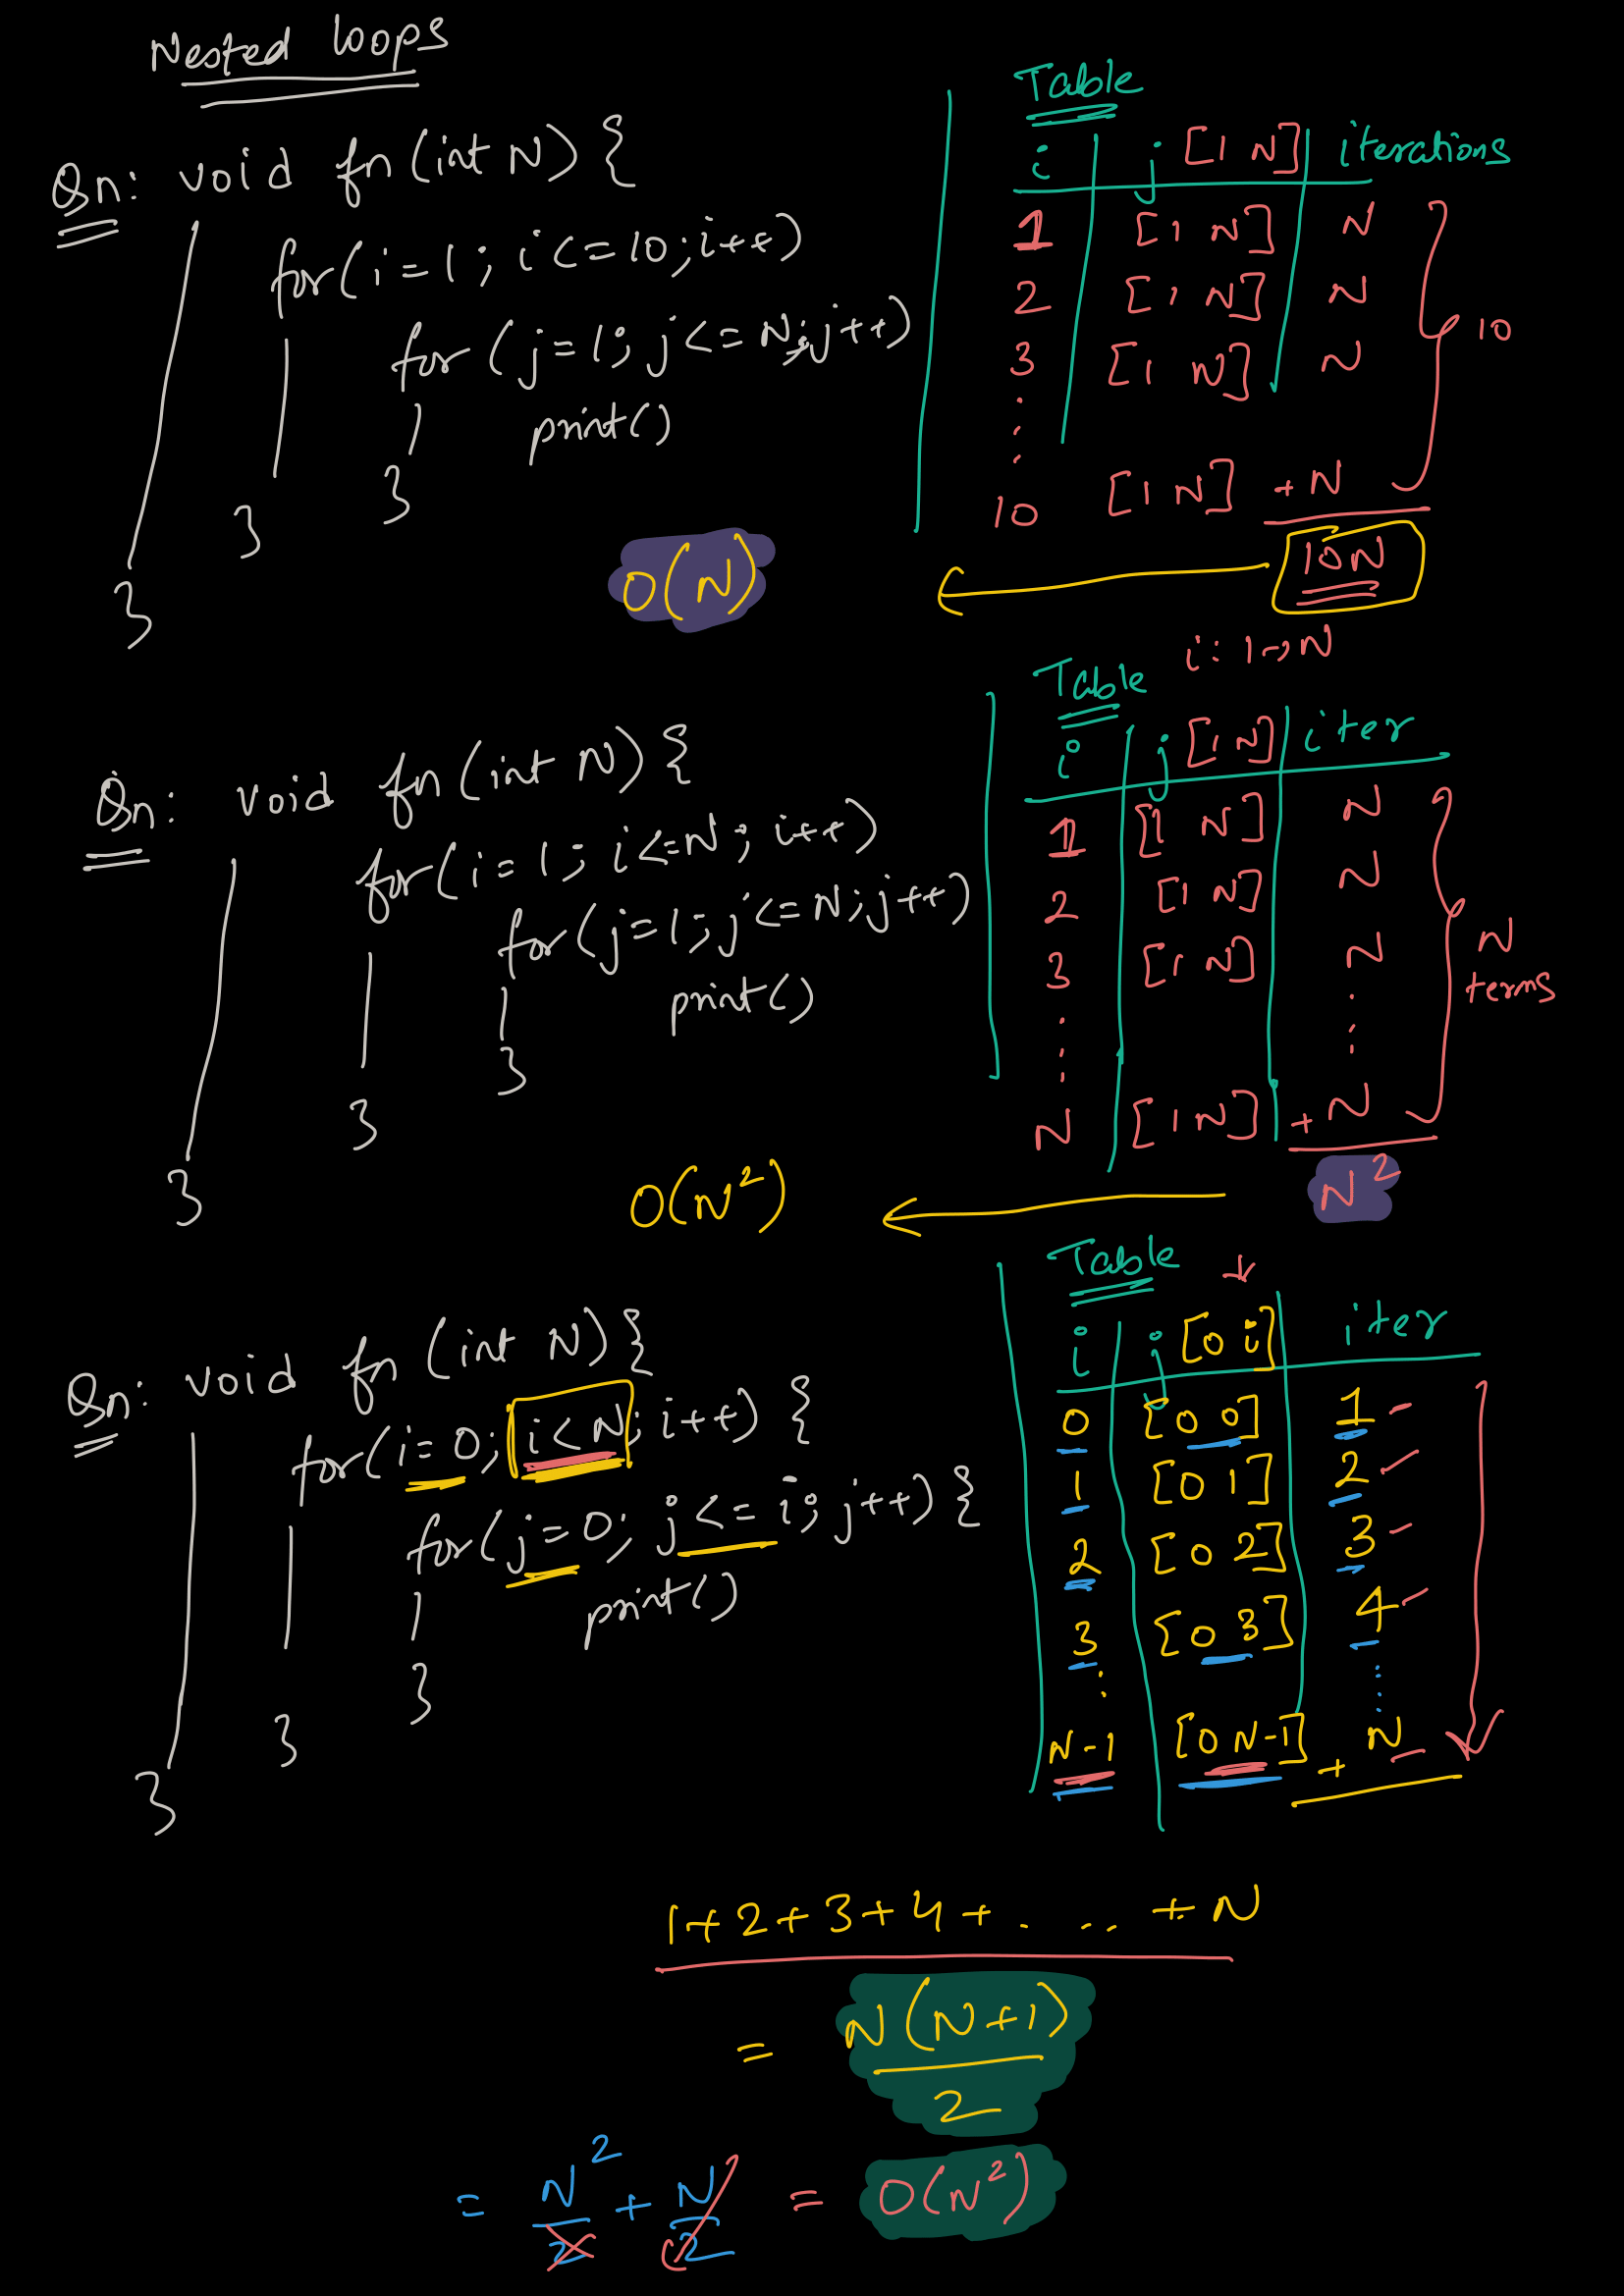 Nested loops
Qn: void fn(int N) {
for(i=1; i<=10; i++)
for (j=1; j<=N; j++)
print()
}
}
}
O(N)
Table
i j [1 N] iterations
1 [1 N] N
2 [1 N] N
3 [1 N] N
10
10 [1 N] + N
10N
Qn: void fn(int N) {
for(i=1; i<=N; i++)
for(j=1; j<=N; j++)
print()
}
}
}
O(N²)
Table i: 1→N
i j [1 N] iter
1 [1 N] N
2 [1 N] N
3 [1 N] N
N terms
N [1 N] + N
N²
Qn: void fn(int N) {
for(i=0; i<N; i++) {
for(j=0; j<=i; j++) {
print()
}
}
}
Table
i j [0 i] iter
0 [0 0] 1
1 [0 1] 2
2 [0 2] 3
3 [0 3] 4
N-1 [0 N-1] + N
1+2+3+4+.....+N
= N(N+1)/2
= N²/2 + N/2 = O(N²)